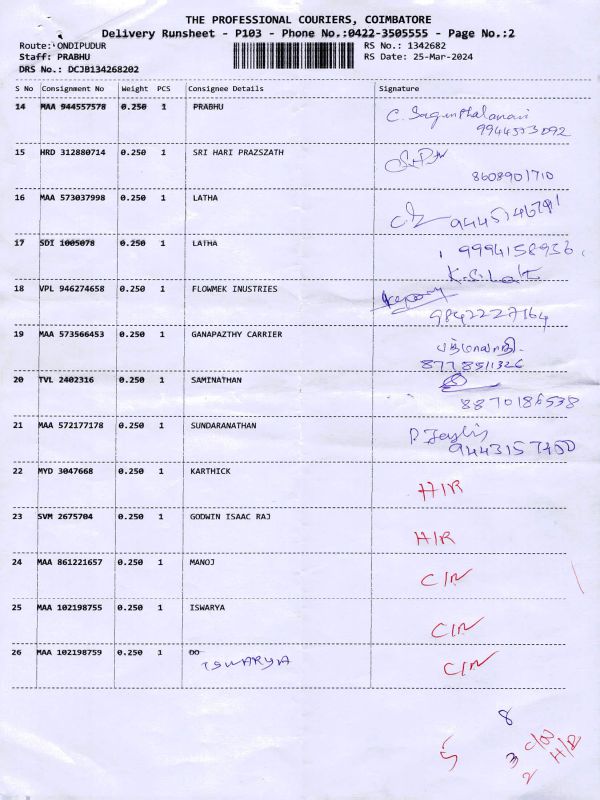 THE PROFESSIONAL COURIERS, COIMBATORE
Delivery Runsheet - P103 - Phone No.:0422-3505555 - Page No.:2
Route: ONDIPUDUR RS No.: 1342682
Staff: PRABHU RS Date: 25-Mar-2024
DRS No.: DCJB134268202
S No Consignment No Weight PCS Consignee Details Signature
14 MAA 944557578 0.250 1 PRABHU
15 HRD 312880714 0.250 1 SRI HARI PRAZSZATH
8608901710
16 MAA 573037998 0.250 1 LATHA
17 SDI 1005078 0.250 1 LATHA 9994158936
K.S. Lat
18 VPL 946274658 0.250 1 FLOWMEK INUSTRIES
9842227164
19 MAA 573566453 0.250 1 GANAPAZTHY CARRIER
8778511326
20 TVL 2402316 0.250 1 SAMINATHAN
8870186538
21 MAA 572177178 0.250 1 SUNDARANATHAN
22 MYD 3047668 0.250 1 KARTHICK H/R
23 SVM 2675704 0.250 1 GODWIN ISAAC RAJ H/R
24 MAA 861221657 0.250 1 MANOJ C/N
25 MAA 102198755 0.250 1 ISWARYA C/N
26 MAA 102198759 0.250 1 DD C/N
ISWARYA
8
5 3 C/N
2 H/R